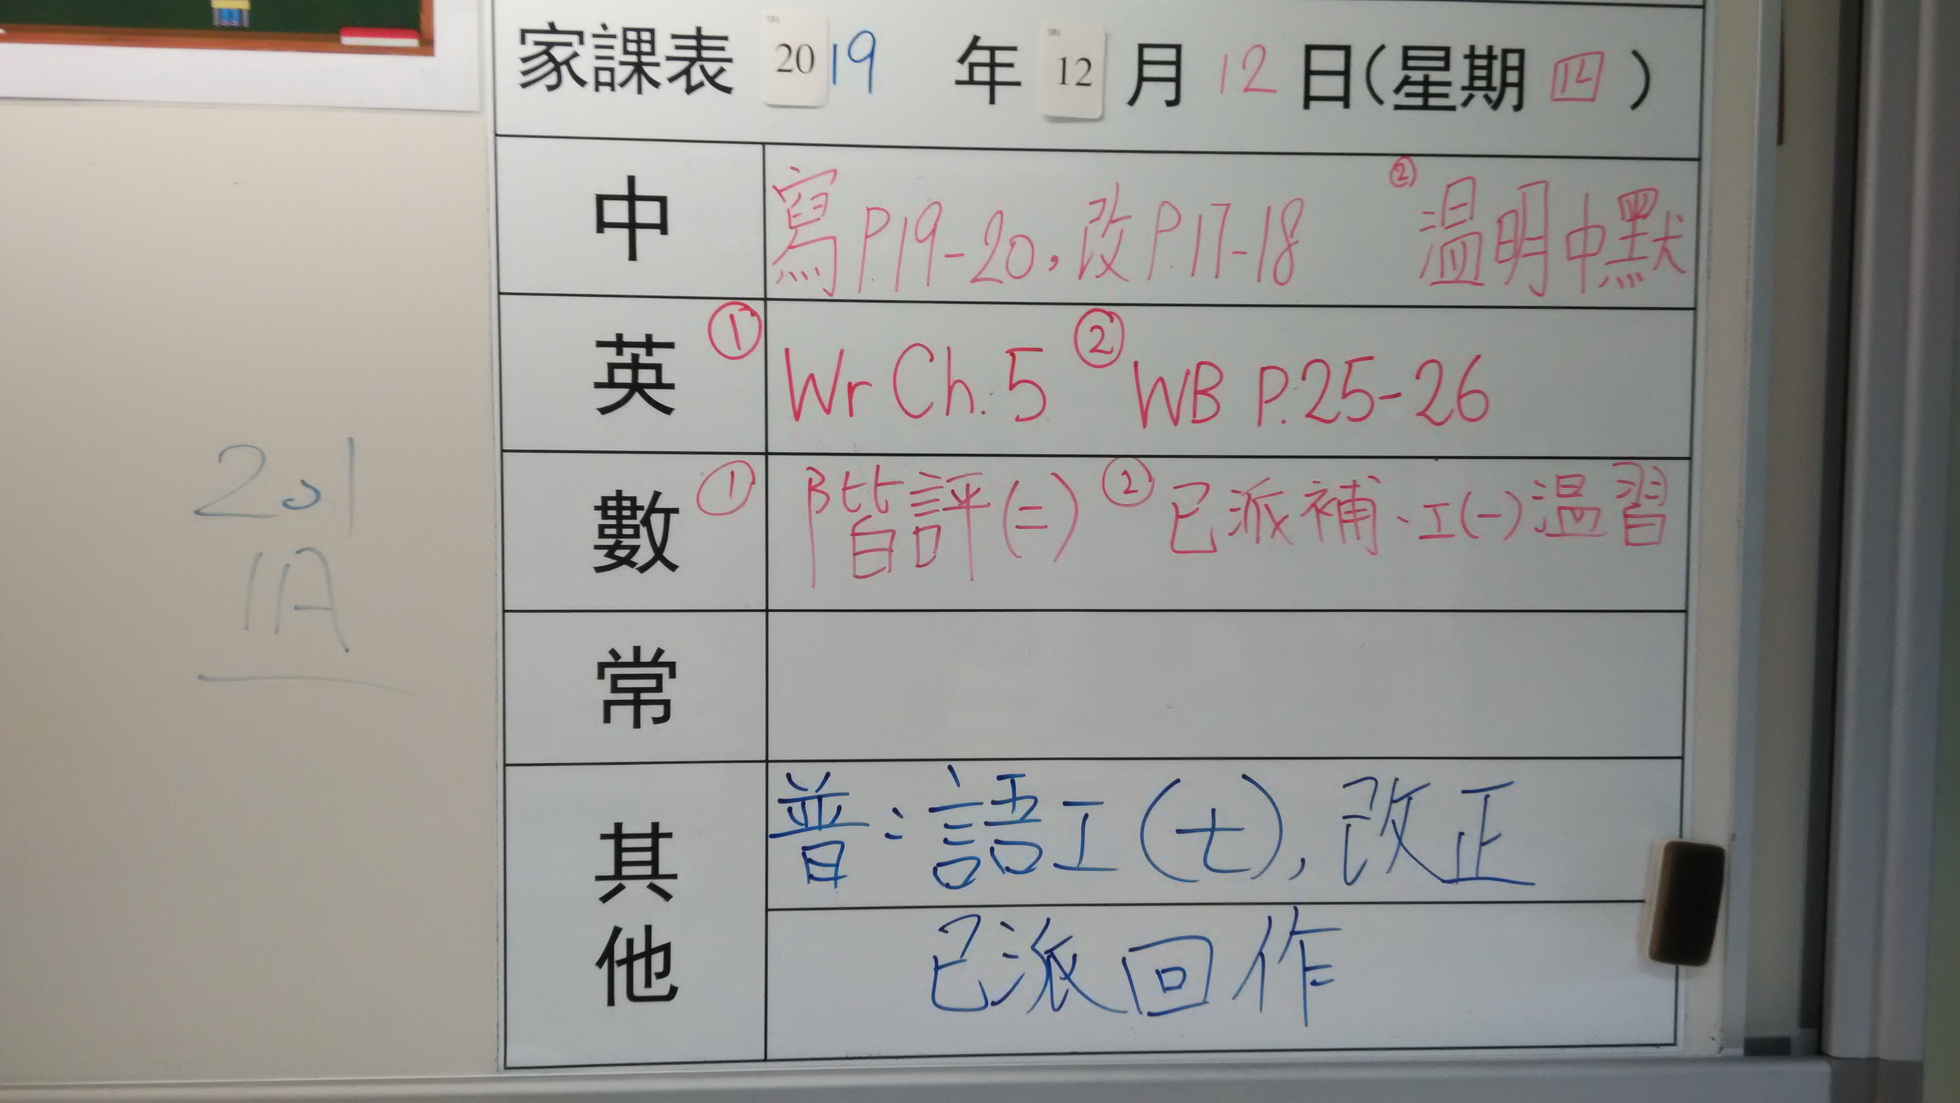 家課表 2019 年 12 月 12 日(星期 四 )
中 寫 P.19-20, 改 P.17-18 ② 温明中默
英 ① Wr Ch. 5 ② WB P.25-26
數 ① 階評(二) ② 已派補、工(一)温習
常
其他 普:語工(七), 改正
已派回作
201
1A